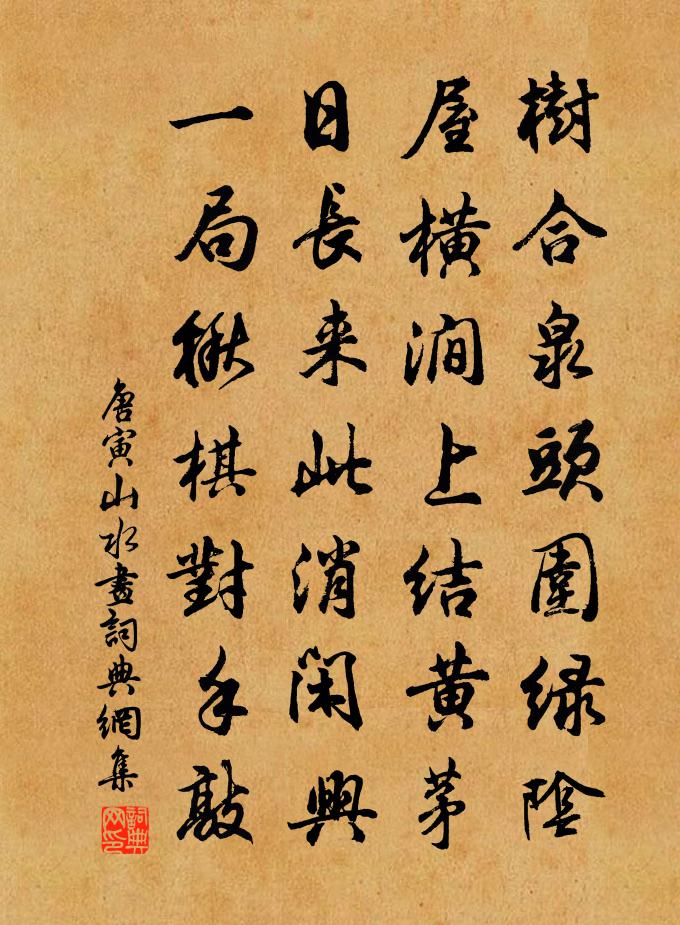 樹合泉頭圍緑陰
屋橫澗上結黄茅
日長来此消閑興
一局楸棋對手敲
唐寅山水畫詞典網集
詞典网印